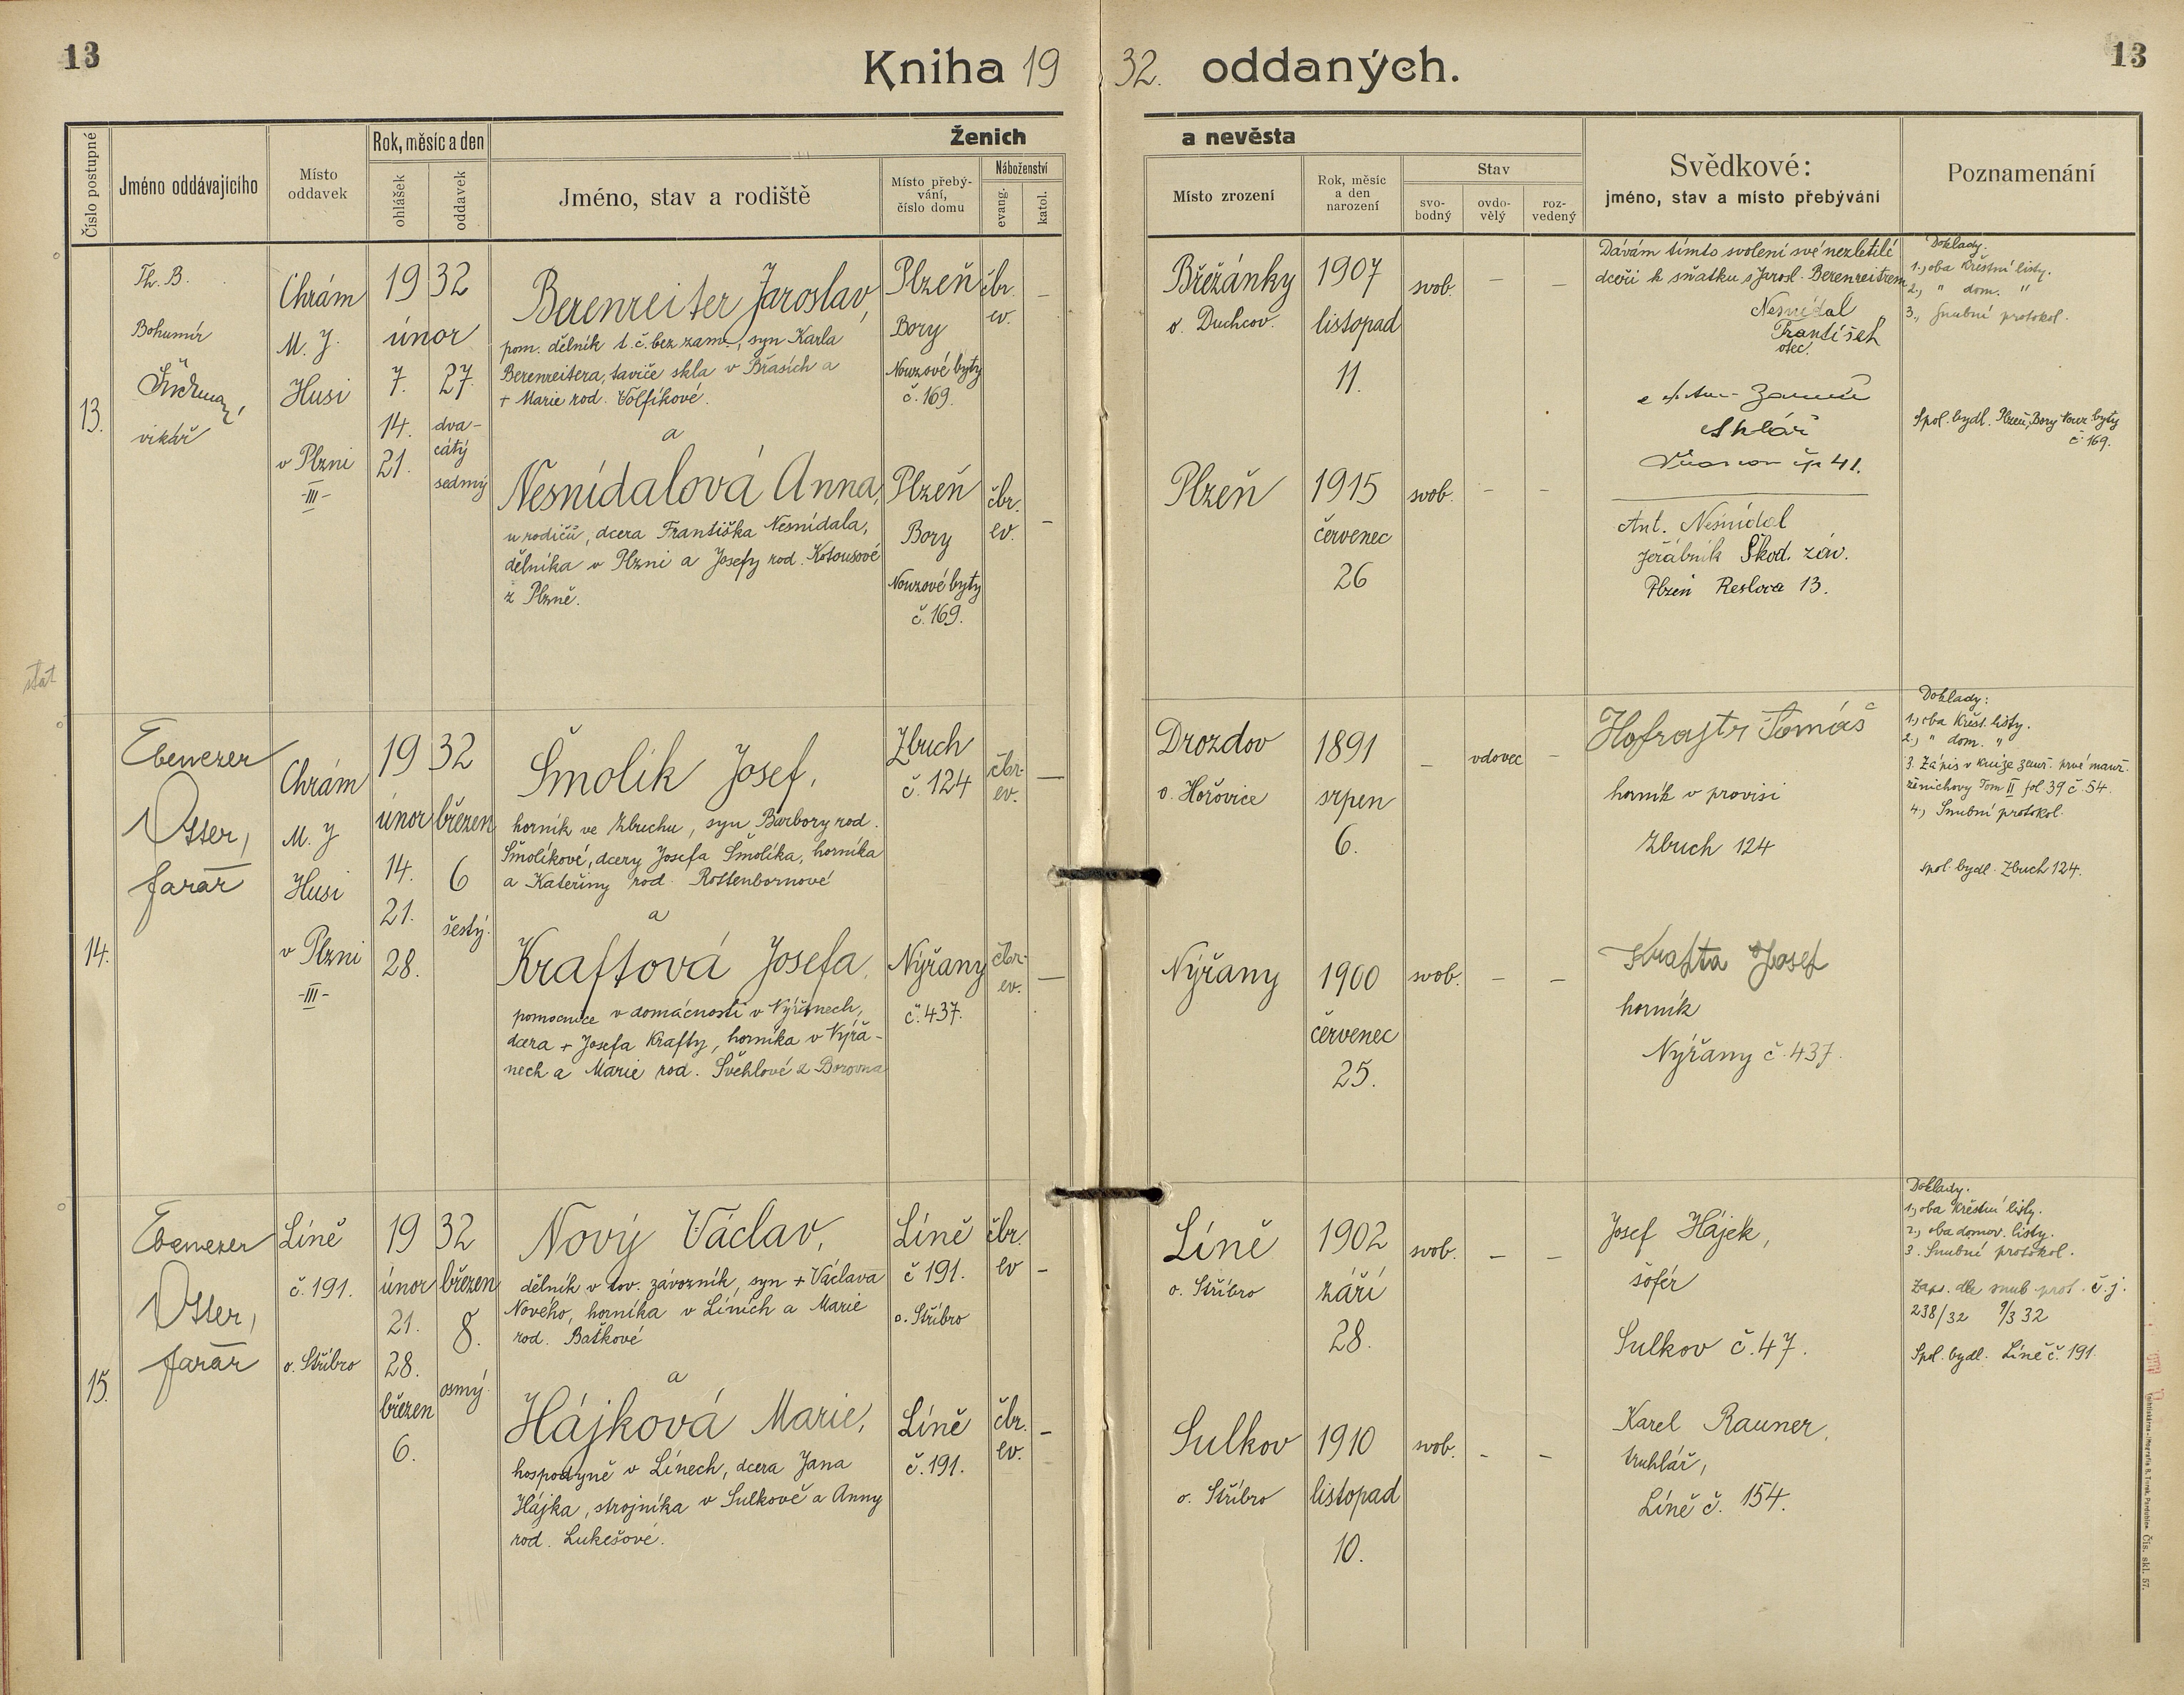 13
Kniha 1932. oddaných.
13
Číslo postupné
Jméno oddávajícího
Místo oddavek
Rok, měsíc a den
ohlášek
oddavek
Ženich
a nevěsta
Jméno, stav a rodiště
Místo přebý-
vání,
číslo domu
Náboženství
evang.
katol.
Místo zrození
Rok, měsíc
a den
narození
Stav
svo-
bodný
ovdo-
vělý
roz-
vedený
Svědkové:
jméno, stav a místo přebývání
Poznamenání
13.
Th. B.
Bohumír
vikář
Chrám
M. J.
Husi
v Plzni
-III-
19 32
únor
7. 27.
14. dva-
cátý
21. sedmý
Berenreiter Jaroslav,
pom. dělník t. č. bez zam., syn Karla
Berenreitera, taviče skla v Břasích a
+ Marie rod. Volfíkové.
a
Nesnídalová Anna,
u rodičů, dcera Františka Nesnídala,
dělníka v Plzni a Josefy rod. Kotousové
z Plzně.
Plzeň
Bory
Nouzové byty
č. 169.
Plzeň
Bory
Nouzové byty
č. 169.
čbr.
ev.
–
čbr.
ev.
–
Břežánky
o. Duchcov.
Plzeň
1907
listopad
11.
1915
červenec
26
svob. – –
svob. – –
Dávám tímto svolení své nezletilé
dceři k sňatku s Jarosl. Berenreitrem
Nesnídal
František
otec.
Sklář
čp 41.
Ant. Nesnídal
jeřábník Škod. záv.
Plzeň Reslova 13.
Doklady.
1., oba křestní listy.
2., " dom. "
3., Snubní protokol.
Spol. bydl. Plzeň, Bory Nouz byty
č. 169.
stát
14.
Ebenezer
Otter,
farář
Chrám
M. J
Husi
v Plzni
-III-
19 32
únor březen
14. 6
21. šestý.
28.
Šmolík Josef,
horník ve Zbuchu, syn Barbory rod.
Šmolíkové, dcery Josefa Šmolíka, horníka
a Kateřiny rod. Rottenbornové
a
Kraftová Josefa,
pomocnice v domácnosti v Nýřanech,
dcera + Josefa Krafty, horníka v Nýřa-
nech a Marie rod. Švehlové z Borovna
Zbuch
č. 124
Nýřany
č. 437.
čbr-
ev.
–
čbr-
ev.
–
Drozdov
o. Hořovice
Nýřany
1891
srpen
6.
1900
červenec
25.
– vdovec –
svob. – –
Hofrajtr Tomáš
horník v provisi
Zbuch 124
Krafta Josef
horník
Nýřany č. 437.
Doklady:
1., oba křest. listy.
2., " dom. "
3. Zápis v knize zemř. prvé manž.
ženichovy Tom II fol 39 č. 54.
4., Snubní protokol.
spol. bydl. Zbuch 124.
15.
Ebenezer
Otter,
farář
Líně
č. 191.
o. Stříbro
19 32
únor březen
21. 8.
28.
osmý.
březen
6.
Nový Václav,
dělník v tov. závozník, syn + Václava
Nového, horníka v Líních a Marie
rod. Baťkové
a
Hájková Marie,
hospodyně v Línech, dcera Jana
Hájka, strojníka v Sulkově a Anny
rod. Lukešové.
Líně
č 191.
o. Stříbro
Líně
č. 191.
čbr.
ev –
čbr.
ev. –
Líně
o. Stříbro
Sulkov
o. Stříbro
1902
září
28.
1910
listopad
10.
svob. – –
svob. – –
Josef Hájek,
šofér
Sulkov č. 47.
Karel Rauner,
truhlář,
Líně č. 154.
Doklady.
1., oba křestní listy.
2., oba domov. listy.
3. Snubní protokol.
Zaps. dle snub prot. č. j.
238/32 9/3 32
Spol. bydl. Líně č. 191.
Čís. skl. 57.